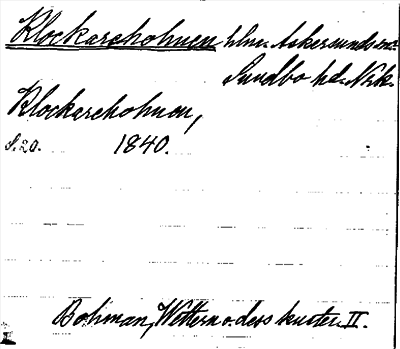 Klockareholmen hlm. Askersunds sn.
Sundbo hd. Närk.
Klockareholmen,
S. 20. 1840.
Bohman, Wettern o. dess kuster. II.